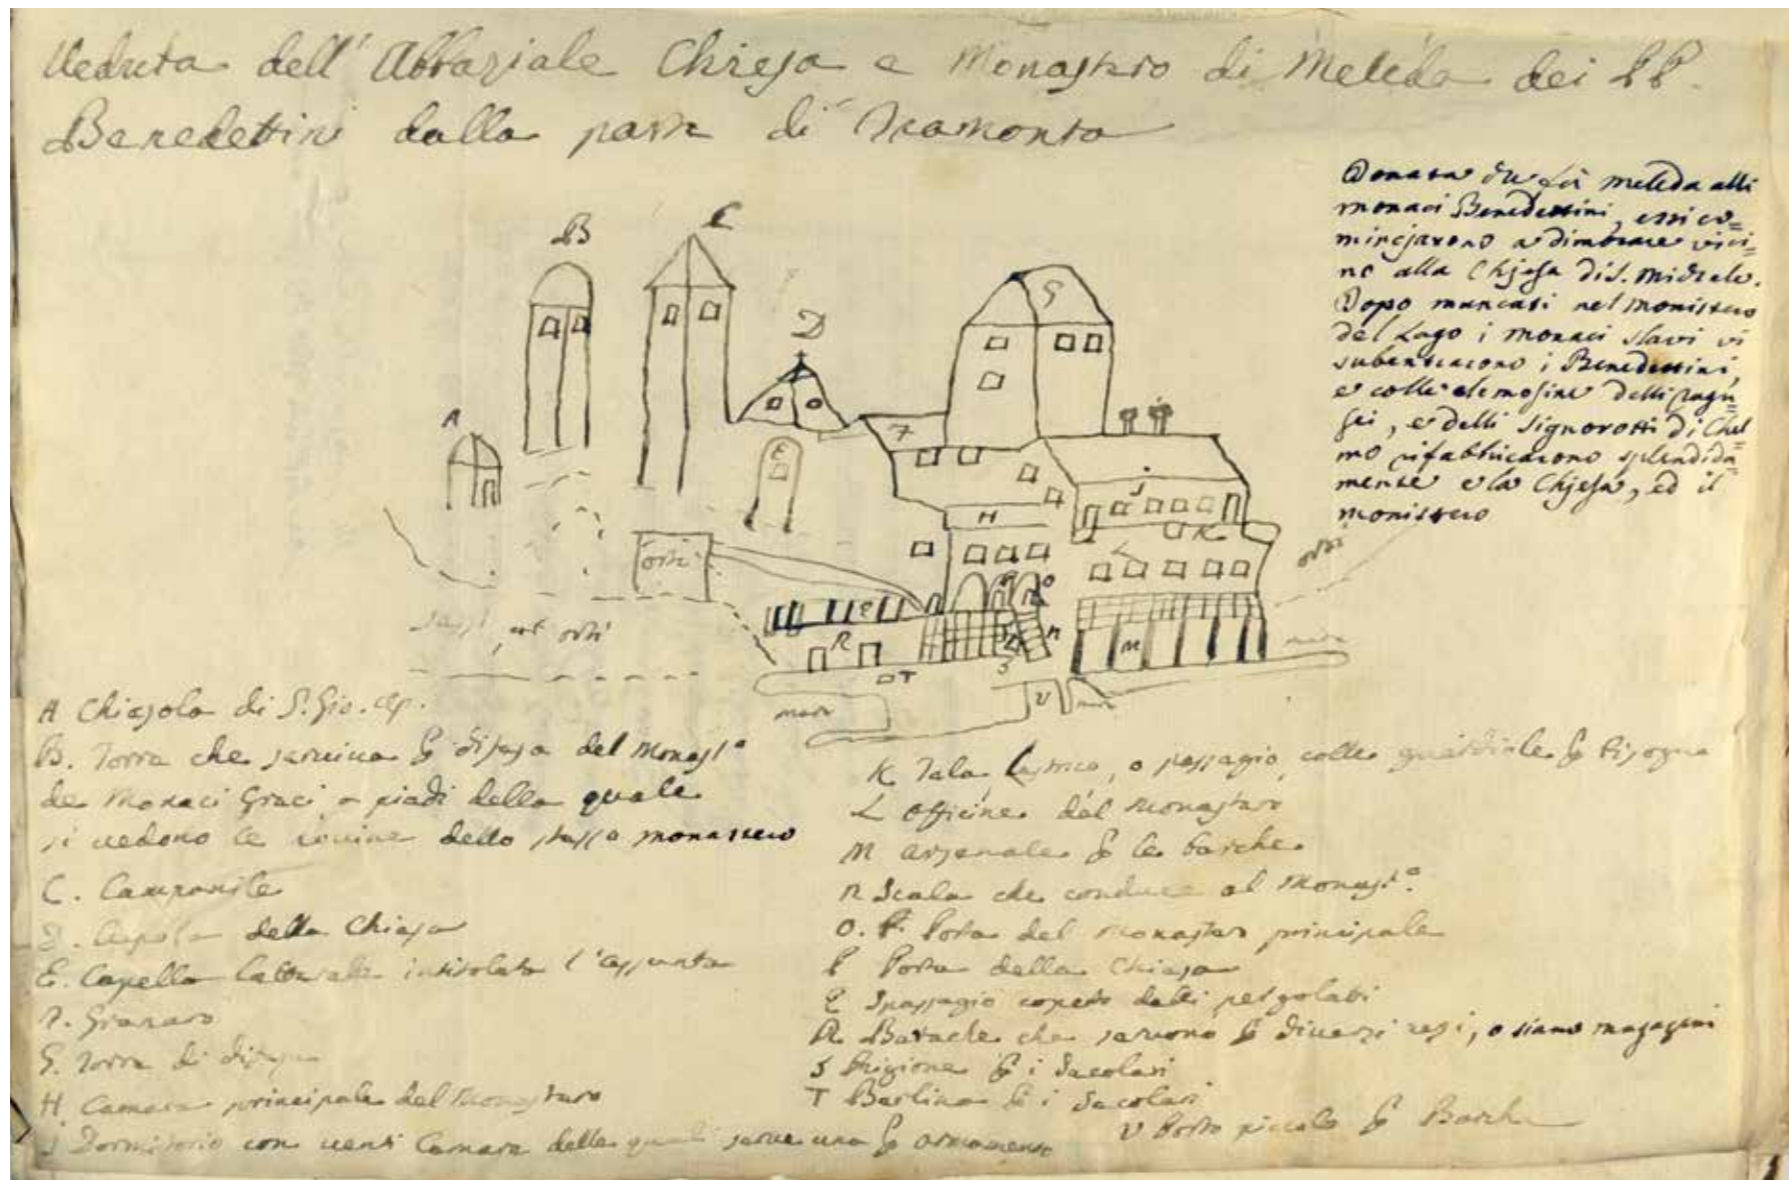 Veduta dell' Abbaziale Chiesa e Monastero di Meleda dei PP.
Benedettini dalla parte di Tramonto
Donata che fù Meleda alli
monaci Benedettini, essi co=
minciarono a dimorare vici=
no alla Chjesa di S. Michele.
Dopo mancati nel monistero
del Lago i monaci slavi vi
subentrarono i Benedettini,
e colle elemosine delli Ragu=
sei, e delli Signorotti di Chel=
mo rifabbricarono splendida=
mente e la Chjesa, ed il
monistero
B
C
D
G
A
F
E
J
H
K
L
orti
orti
P
O
Q
R
N
M
orti
S
T
mare
V
mare
A Chiesola di S. Gio. Ap.
B. Torre che serviva p difesa del Monastº
de Monaci Greci a piedi della quale
si vedono le rovine dello stesso monastero
C. Campanile
D. Cupola della Chiesa
E. Capella latterale intitolata l'Assunta
F. Granaro
G. Torre di difesa
H Camera principale del Monastero
J Dormitorio con venti Camere delle quali serve una p
K Tela, o passagio colle p bisogno
L Officine del Monastero
M Arsenale p le barche
N Scala che conduce al Monastº.
O. P. Porta del Monastero principale
P Porta della Chiesa
Q Spassagio coperto dalli pergolati
R Barache che servono p diversi usi, o siano magazeni
S Prigione p i Secolari
T Berlina p i Secolari
V Porto piccolo p Barche